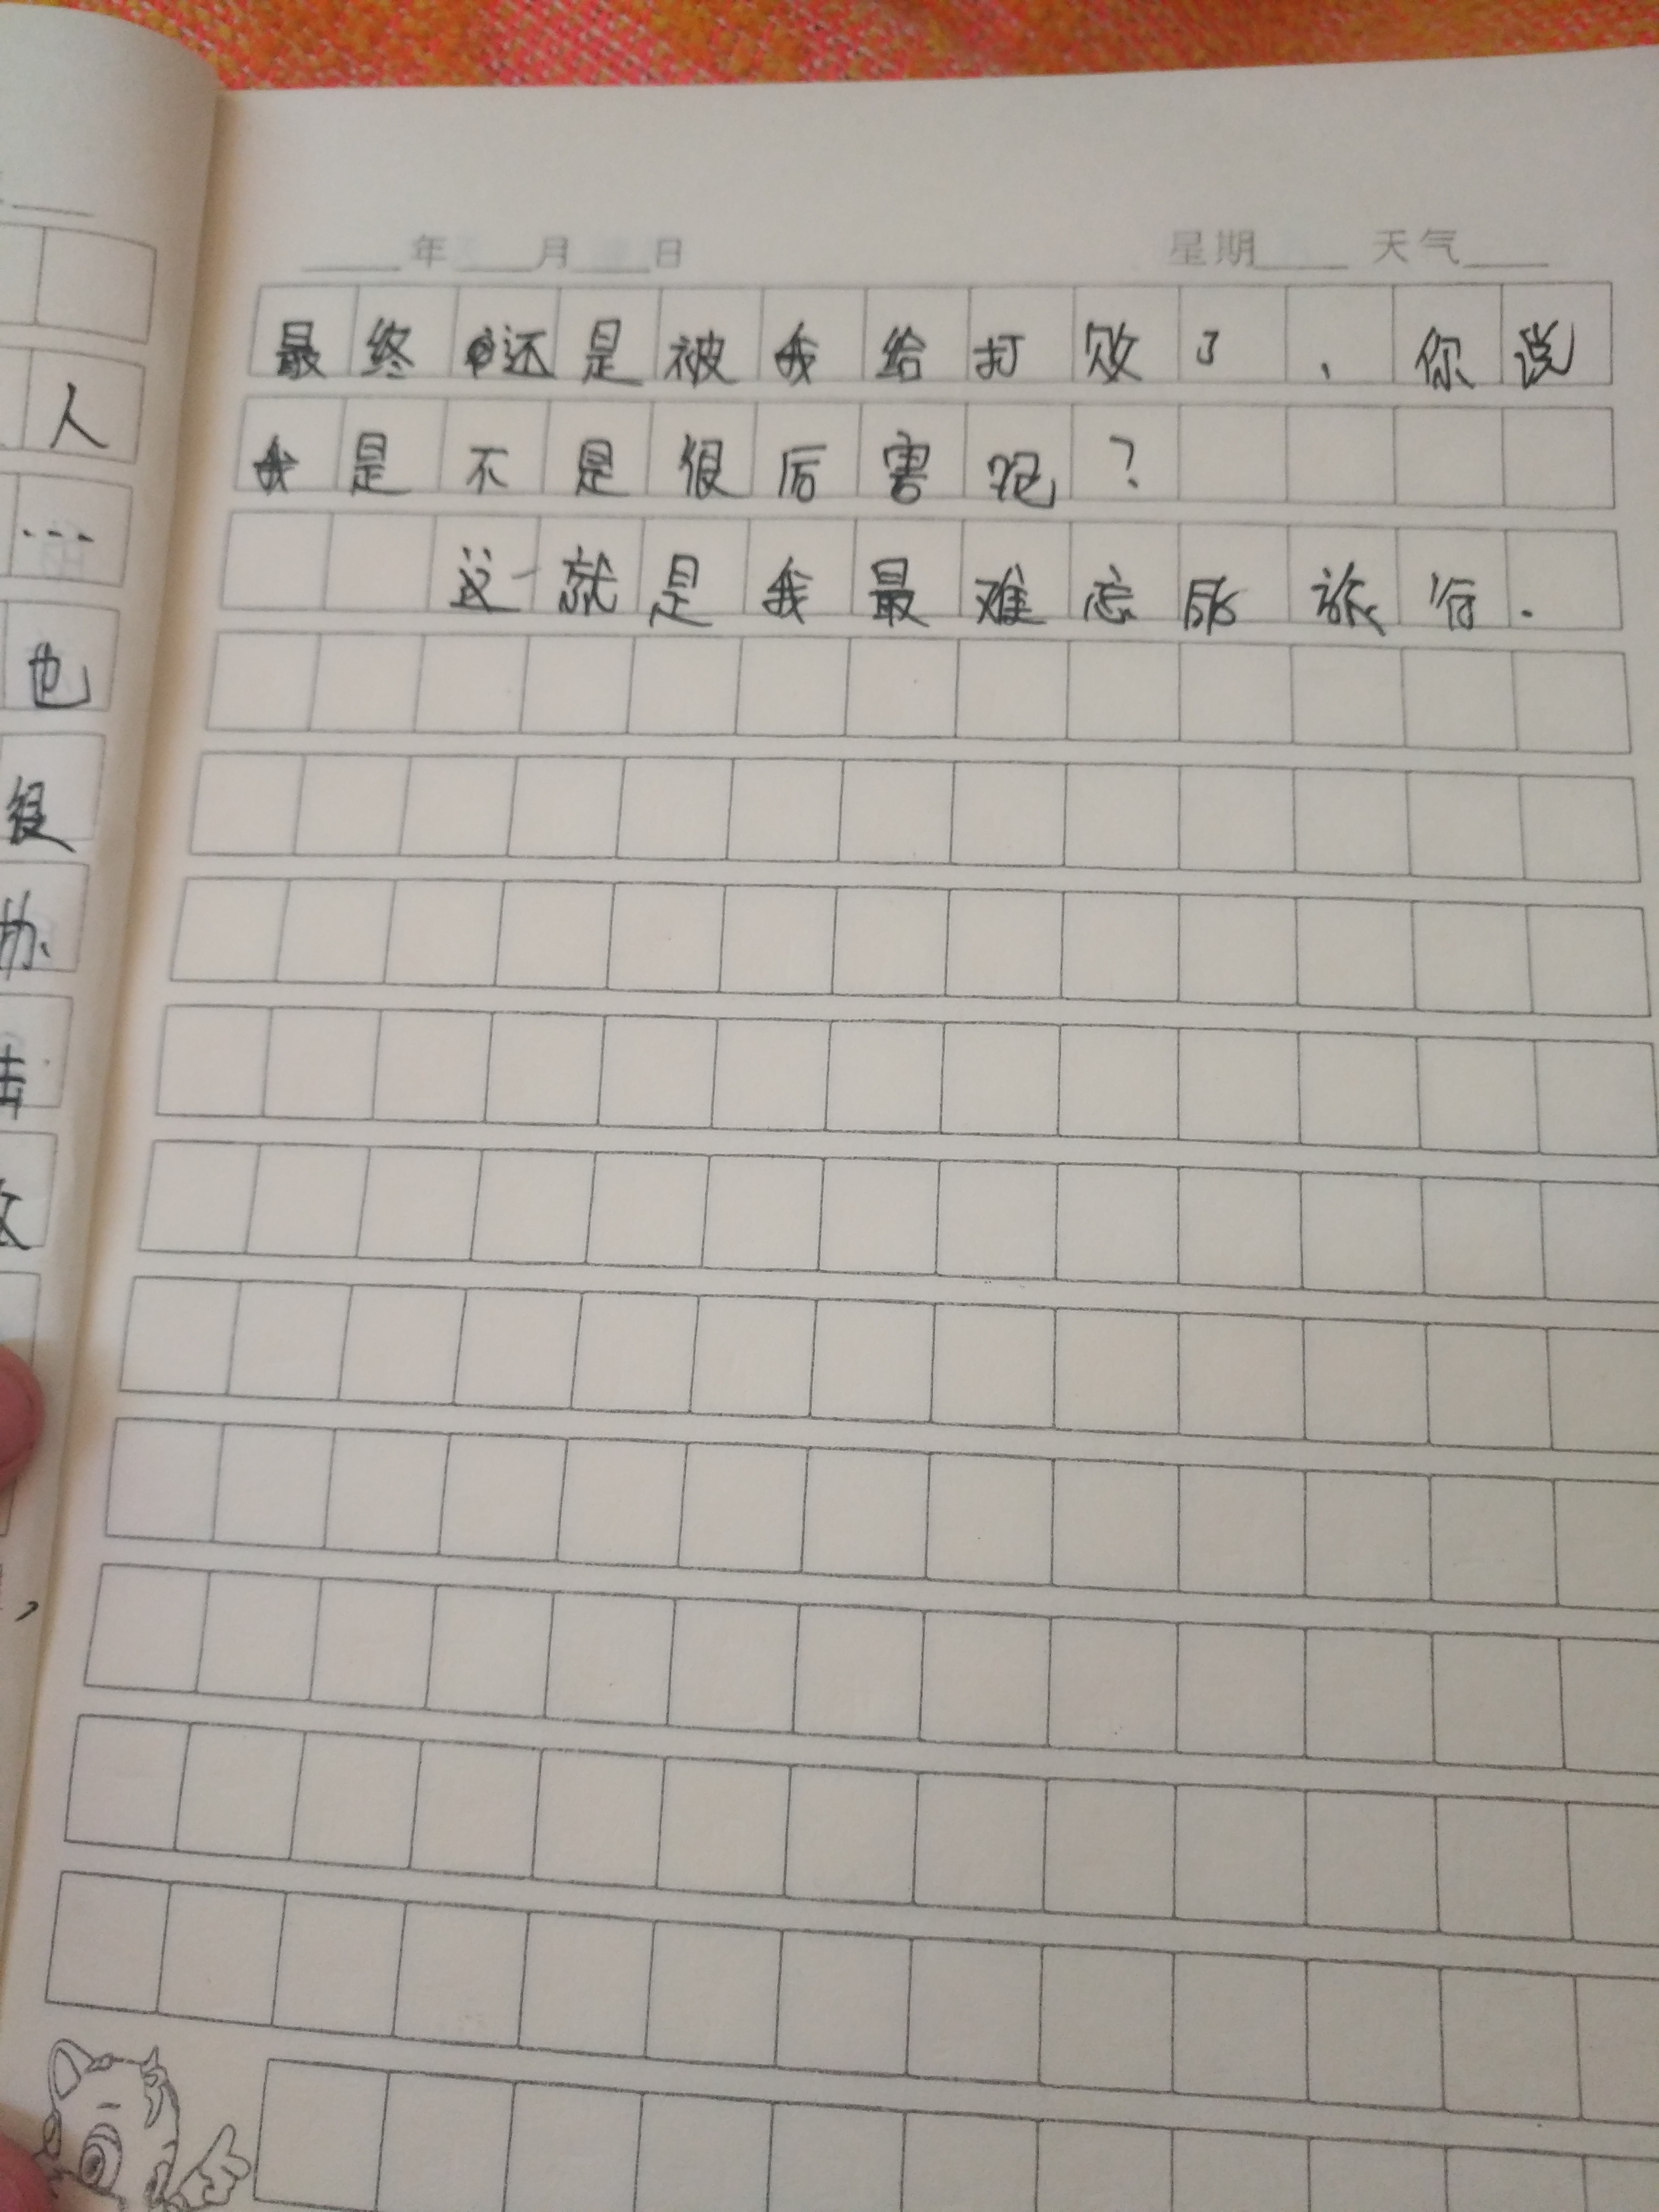 年 月 日 星期 天气
最终还是被我给打败了、你说
我是不是很厉害吧?
这就是我最难忘的旅行.
人
…
也
很
办